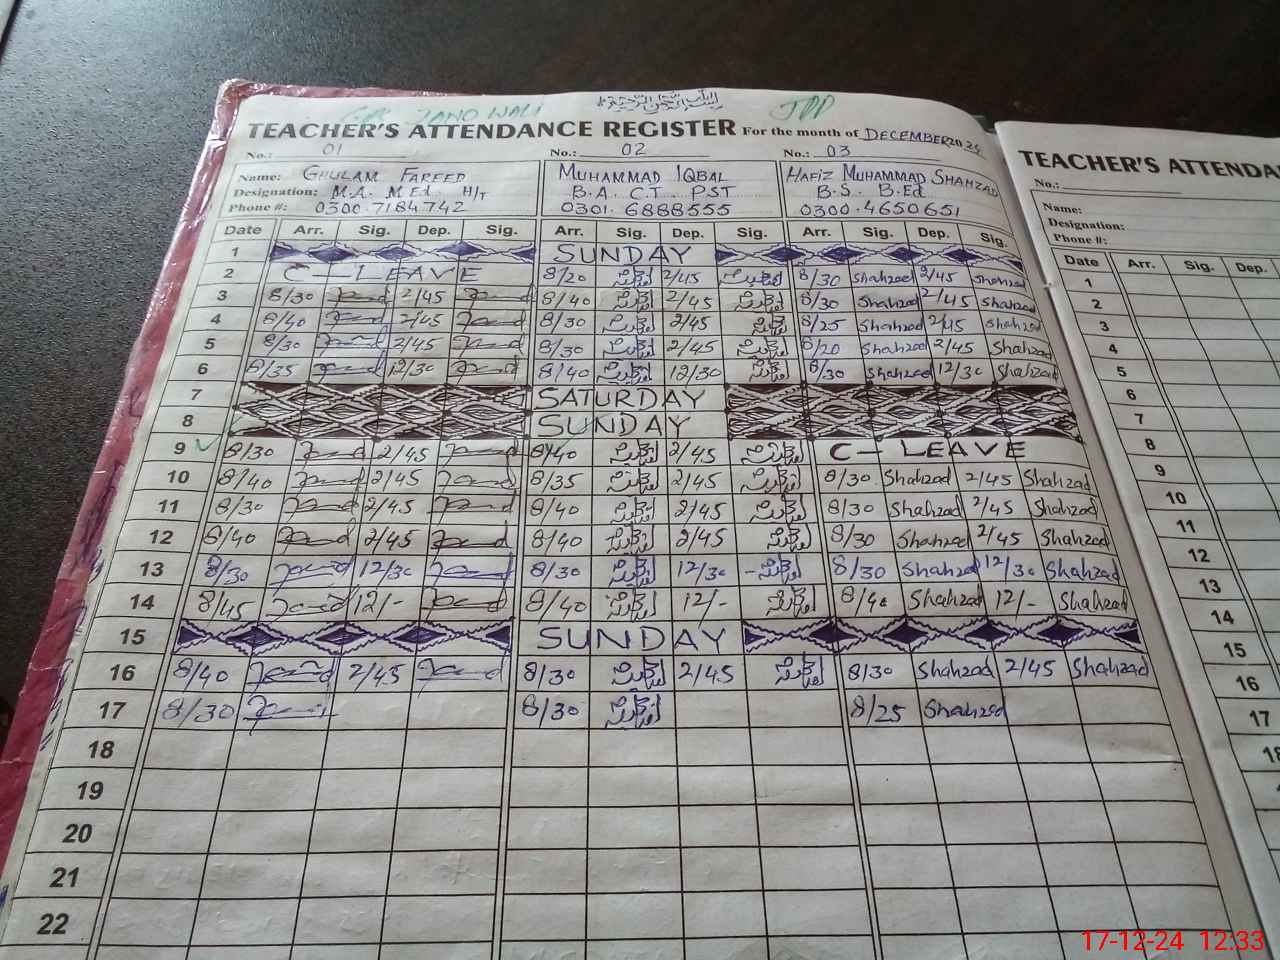 JANO WALI JPP
TEACHER'S ATTENDANCE REGISTER For the month of DECEMBER 2024
No.: 01 No.: 02 No.: 03
Name: GHULAM FAREED MUHAMMAD IQBAL HAFIZ MUHAMMAD SHAHZAD
Designation: M.A. M.Ed. H/T B.A. C.T. PST B.S. B.Ed
Phone #: 0300.7184742 0301.6888555 0300.4650651
Date Arr. Sig. Dep. Sig. Arr. Sig. Dep. Sig. Arr. Sig. Dep. Sig.
1 SUNDAY
2 C-LEAVE 8/20 2/45 8/30 Shahzad 2/45 Shahzad
3 8/30 2/45 8/40 2/45 8/30 Shahzad 2/45 Shahzad
4 8/40 2/45 8/30 2/45 8/25 Shahzad 2/45 Shahzad
5 8/30 2/45 8/30 2/45 8/20 Shahzad 2/45 Shahzad
6 8/35 12/30 8/40 12/30 8/30 Shahzad 12/30 Shahzad
7 SATURDAY
8 SUNDAY
9 8/30 2/45 8/40 2/45 C-LEAVE
10 8/40 2/45 8/35 2/45 8/30 Shahzad 2/45 Shahzad
11 8/30 2/45 8/40 2/45 8/30 Shahzad 2/45 Shahzad
12 8/40 2/45 8/40 2/45 8/30 Shahzad 2/45 Shahzad
13 8/30 12/30 8/30 12/30 8/30 Shahzad 12/30 Shahzad
14 8/45 12/- 8/40 12/- 8/40 Shahzad 12/- Shahzad
15 SUNDAY
16 8/40 2/45 8/30 2/45 8/30 Shahzad 2/45 Shahzad
17 8/30 8/30 8/25 Shahzad
18
19
20
21
22
TEACHER'S ATTENDA
No.:
Name:
Designation:
Phone #:
Date Arr. Sig. Dep.
1
2
3
4
5
6
7
8
9
10
11
12
13
14
15
16
17
18
17-12-24 12:33